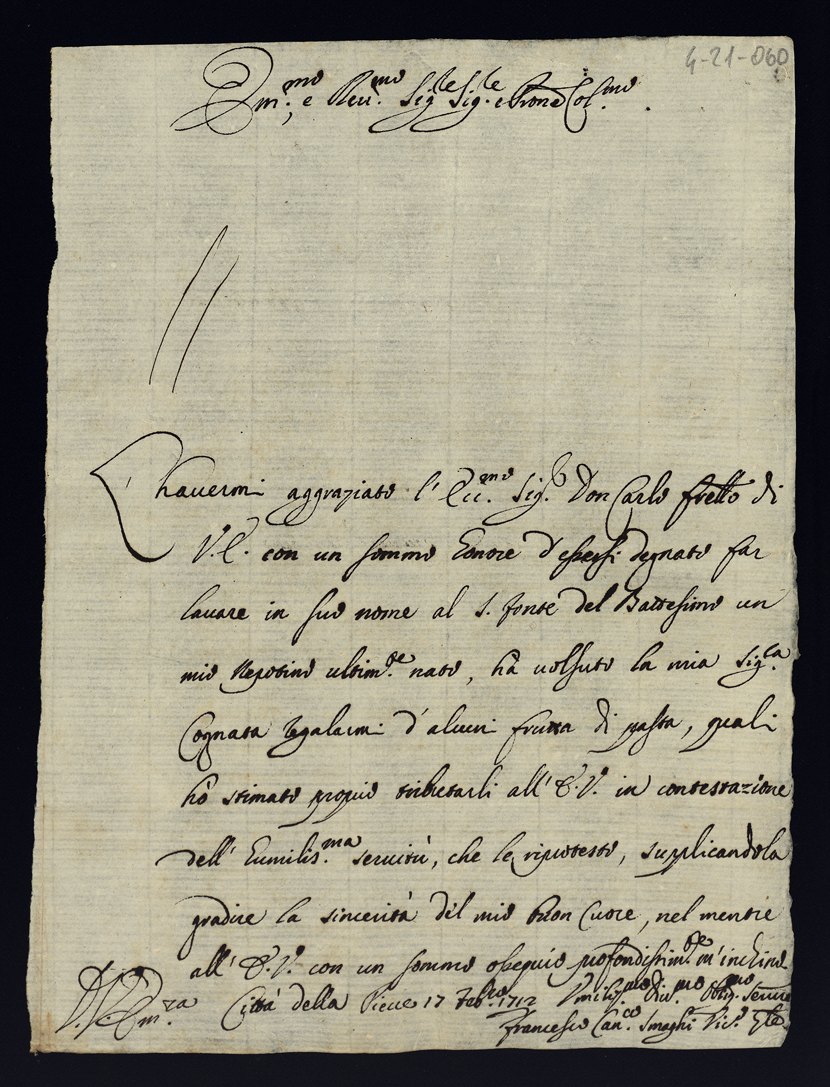 4-21-060
Em.mo e Reu.mo Sig.le Sig.le e Prone Col.mo
L'hauermi aggraziato l'Ecc.mo Sig.r Don Carlo frello di
V.E. con un sommo honore d'essersi degnato far
lauare in suo nome al S. fonte del Battesimo un
mio Nepotino ultim.te nato, hà uolsuto la mia Sig.ra
Cognata regalarmi d'alcuni frutta di pasta, quali
hò stimato proprio tributarli all'E.V. in contestazione
dell'humilis.ma seruitù, che le riprotesto, supplicandola
gradire la sincerità del mio buon Cuore, nel mentre
all'E.V. con un sommo ossequio profondissim.te m'inchino
V. Em.za Città della Pieue 17 Feb.ro 1712 Vmilis.mo Diu.mo Oblig.mo Seruire
Francesco Can.co Smaghi Vic.o Gle